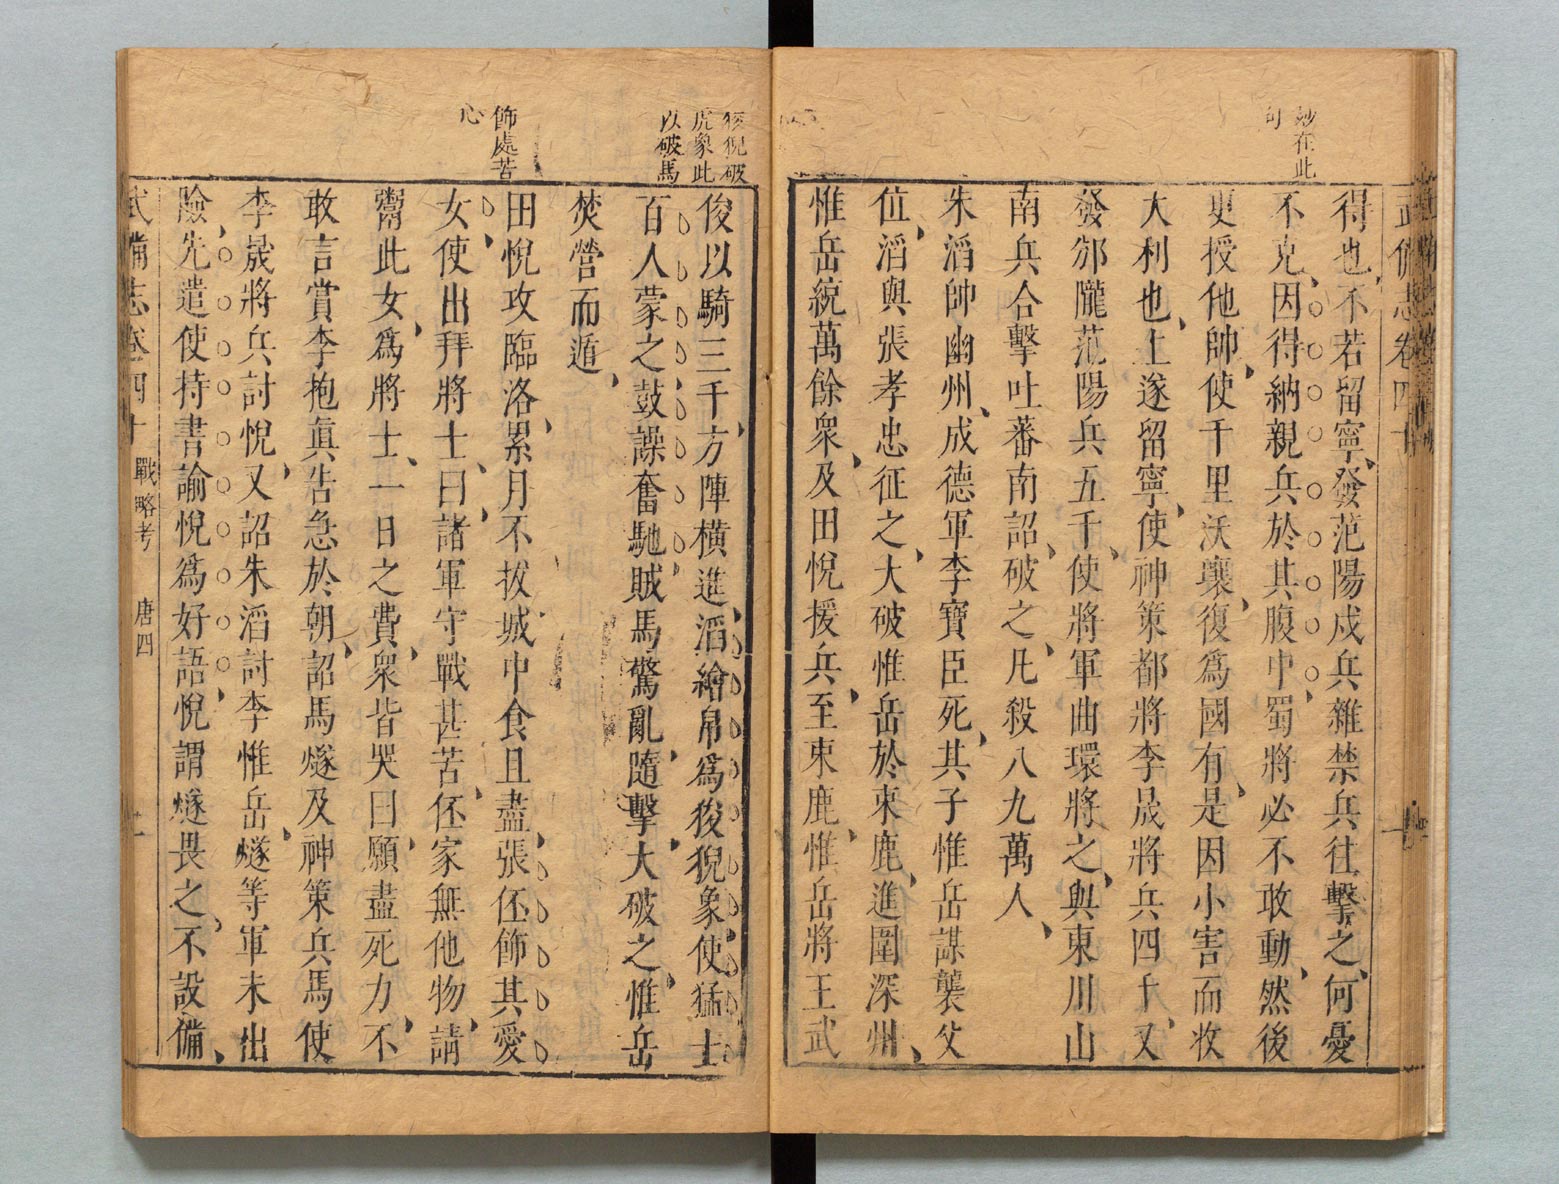 妙在此
句
武備志卷四十
得也不若留寧發范陽戍兵雜禁兵往擊之何憂
不克因得納親兵於其腹中蜀將必不敢動然後
更授他帥使千里沃壤復爲國有是因小害而收
大利也上遂留寧使神策都將李晟將兵四千又
發邠隴范陽兵五千使將軍曲環將之與東川山
南兵合擊吐蕃南詔破之凡殺八九萬人
朱滔帥幽州成德軍李寶臣死其子惟岳謀襲父
位滔與張孝忠征之大破惟岳於束鹿進圍深州
惟岳統萬餘衆及田悅援兵至束鹿惟岳將王武
狻猊破
虎象此
以破馬
飾處苦
心
俊以騎三千方陣橫進滔繪帛爲狻猊象使猛士
百人蒙之鼓譟奮馳賊馬驚亂隨擊大破之惟岳
焚營而遁
田悅攻臨洛累月不拔城中食且盡張伾飾其愛
女使出拜將士曰諸軍守戰甚苦伾家無他物請
鬻此女爲將士一日之費衆皆哭曰願盡死力不
敢言賞李抱眞告急於朝詔馬燧及神策兵馬使
李晟將兵討悅又詔朱滔討李惟岳燧等軍未出
險先遣使持書諭悅爲好語悅謂燧畏之不設備
武備志卷四十 戰略考 唐四 二